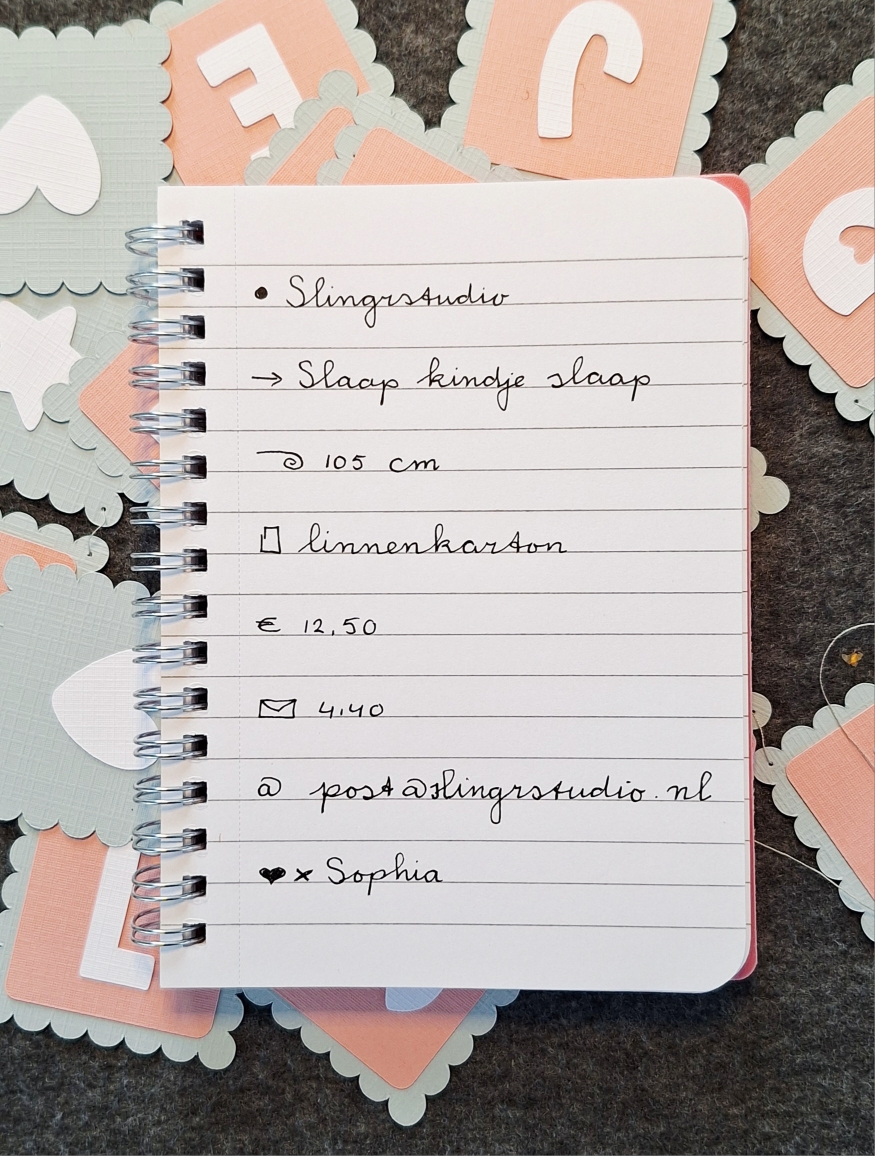 • Slingrstudio
→ Slaap kindje slaap
105 cm
linnenkarton
€ 12,50
4,40
@ post@slingrstudio.nl
♥ x Sophia